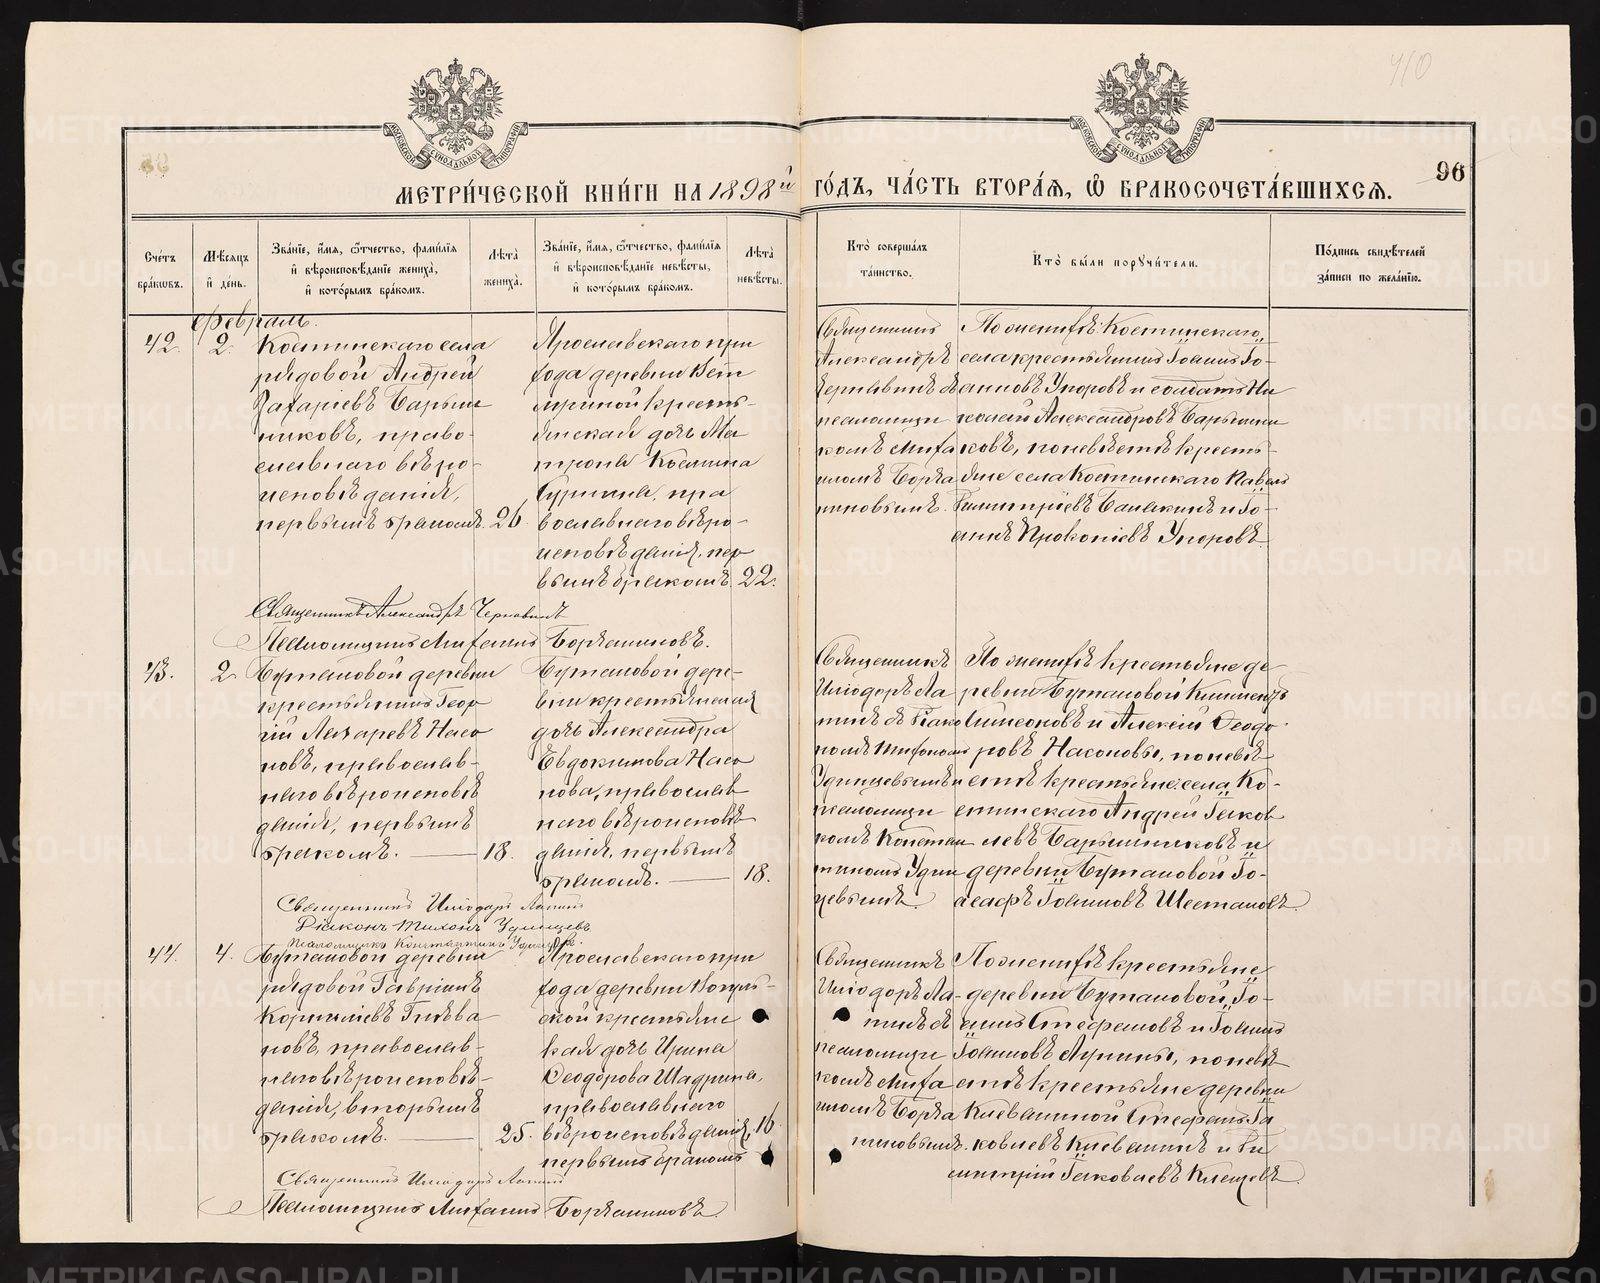 410
96
МЕТРИЧЕСКОЙ КНИГИ НА 1898й ГОДЪ, ЧАСТЬ ВТОРАЯ, Ѡ БРАКОСОЧЕТАВШИХСЯ.
Счетъ браковъ.
Мѣсяцъ и день.
Званіе, имя, отчество, фамилія и вѣроисповѣданіе жениха, и которымъ бракомъ.
Лѣта жениха.
Званіе, имя, отчество, фамилія и вѣроисповѣданіе невѣсты, и которымъ бракомъ.
Лѣта невѣсты.
Кто совершалъ таинство.
Кто были поручители.
Подпись свидѣтелей записи по желанію.
Февраль.
42. 2.
Костинскаго села
рядовой Андрей
Захаріевъ Барыш
никовъ, право-
славнаго вѣро-
исповѣданія,
первымъ бракомъ. 26.
Ярославскаго при
хода деревни
крестъ-
янская дочь Ма
трона Космина
пра
вославнаго вѣро-
исповѣданія, пер
вымъ бракомъ. 22.
Священникъ
Александръ
псаломщи
комъ Митро
По женихѣ: Костинскаго
села крестьянинъ Іоаннъ Іо-
анновъ Упоровъ и солдатъ Ни
колай Александровъ Барышни
ковъ, по невѣстѣ крестъ-
яне села Костинскаго Павелъ
Димитріевъ и Іо-
аннъ Прокопіевъ Упоровъ.
Священникъ Александръ
43. 2
Бутановой деревни
крестьянинъ Геор
гій Лазаревъ Насо
новъ, православ-
наго вѣроисповѣ
данія, первымъ
бракомъ. 18.
Бутановой дерев-
ни крестьянская
дочь Александра
Евдокимова Насо
нова, православ
наго вѣроисповѣ
данія, первымъ
бракомъ. 18.
Священникъ
Иліодоръ Ла
пинъ съ діако
номъ Тихономъ
Удинцевымъ и
псаломщи
комъ Констан
тиномъ Удин
цевымъ.
По женихѣ крестьяне де
ревни Бутановой Климентъ
Симеоновъ и Алексій Ѳеодо
ровъ Насоновы, по невѣ
стѣ крестьяне: села Ко-
стинскаго Андрей Іаков
левъ Барышниковъ и
деревни Бутановой Іо-
асафъ Іоанновъ Шестаковъ.
Священникъ Иліодоръ Лапинъ
Діаконъ Тихонъ Удинцевъ
Псаломщикъ Константинъ Удинцевъ.
44. 4.
Бутановой деревни
рядовой Гавріилъ
Корниліевъ Гнѣва
новъ, православ-
наго вѣроисповѣ-
данія, вторымъ
бракомъ. 25.
Ярославскаго при
хода деревни
ской крестьянс
кая дочь Ирина
Ѳеодорова Шадрина,
православнаго
вѣроисповѣданія, 16
первымъ бракомъ
Священникъ
Иліодоръ Ла-
пинъ съ
псаломщи
комъ
По женихѣ крестьяне
деревни Бутановой, Іо-
аннъ Стефановъ и Іоаннъ
Іоанновъ Лупины, по невѣ
стѣ крестьяне деревни
Стефанъ Іа
ковлевъ и Ди
митрій Іаковлевъ Клещевъ.
Священникъ Иліодоръ Лапинъ